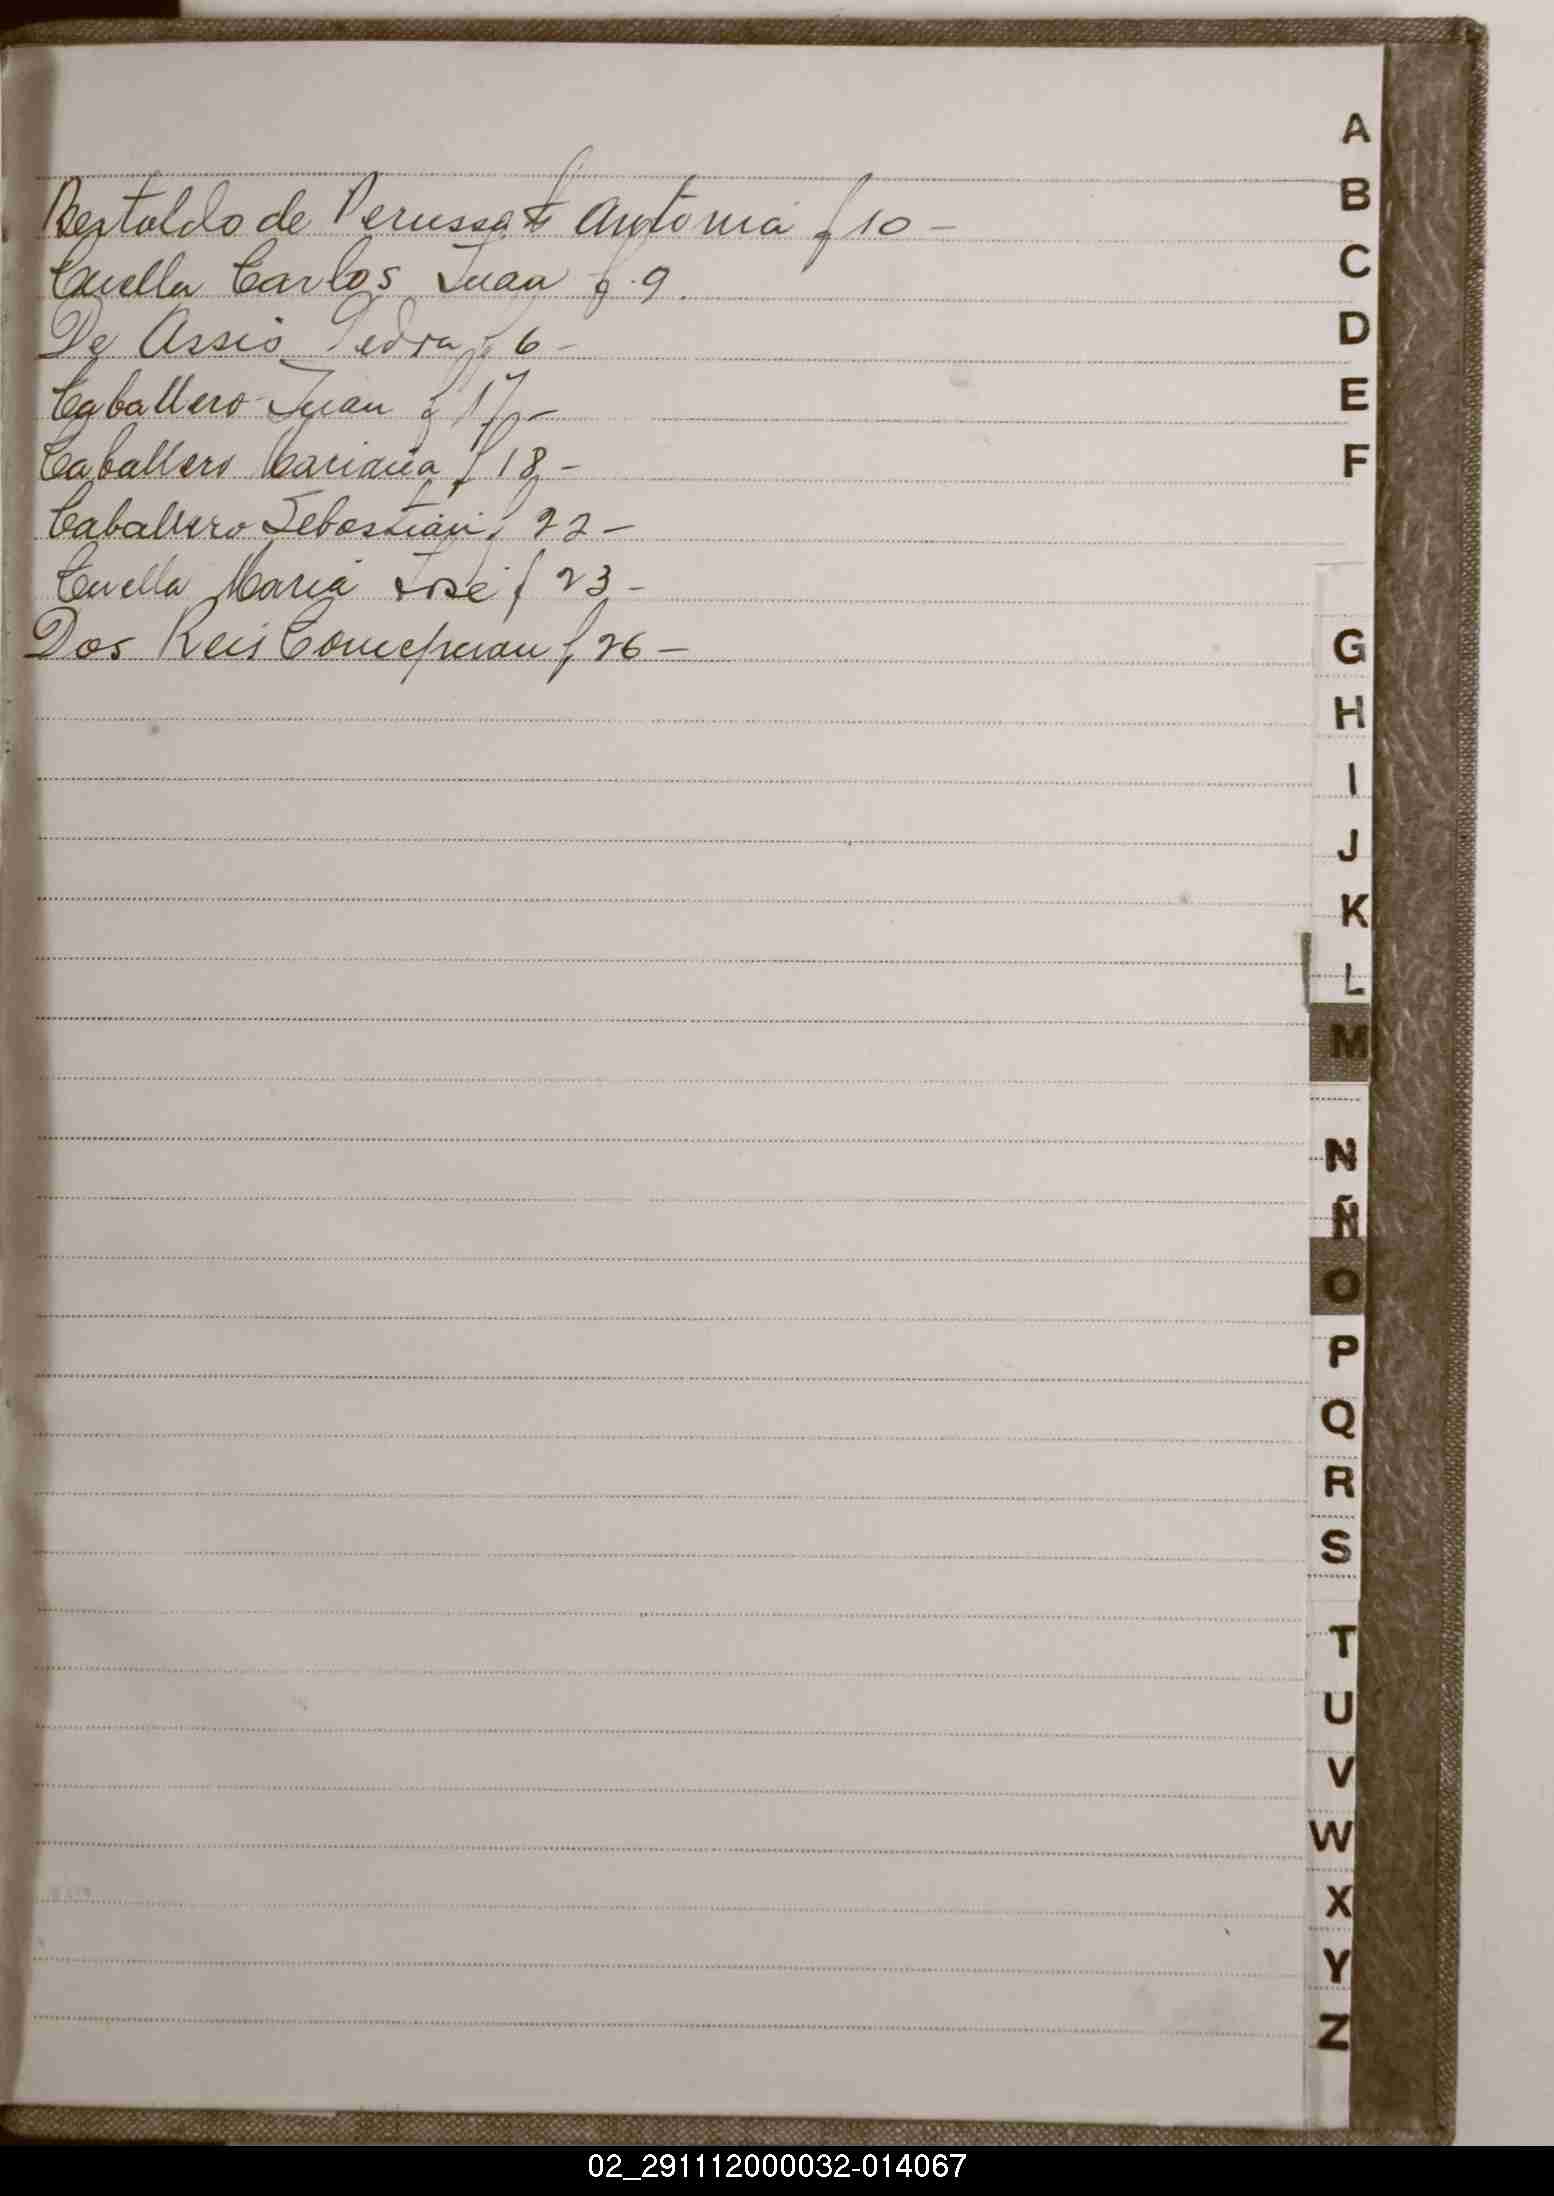 Bertoldo de Perussatt Antonia f 10 -
Cuella Carlos Juan f 9.
De Assis Pedra f 6 -
Caballero Juan f 17 -
Caballero Mariana f 18 -
Caballero Sebastian f 22 -
Cuella Maria José f 23 -
Dos Reis Concepcion f 26 -
A
B
C
D
E
F
G
H
I
J
K
L
M
N
Ñ
O
P
Q
R
S
T
U
V
W
X
Y
Z
02_291112000032-014067